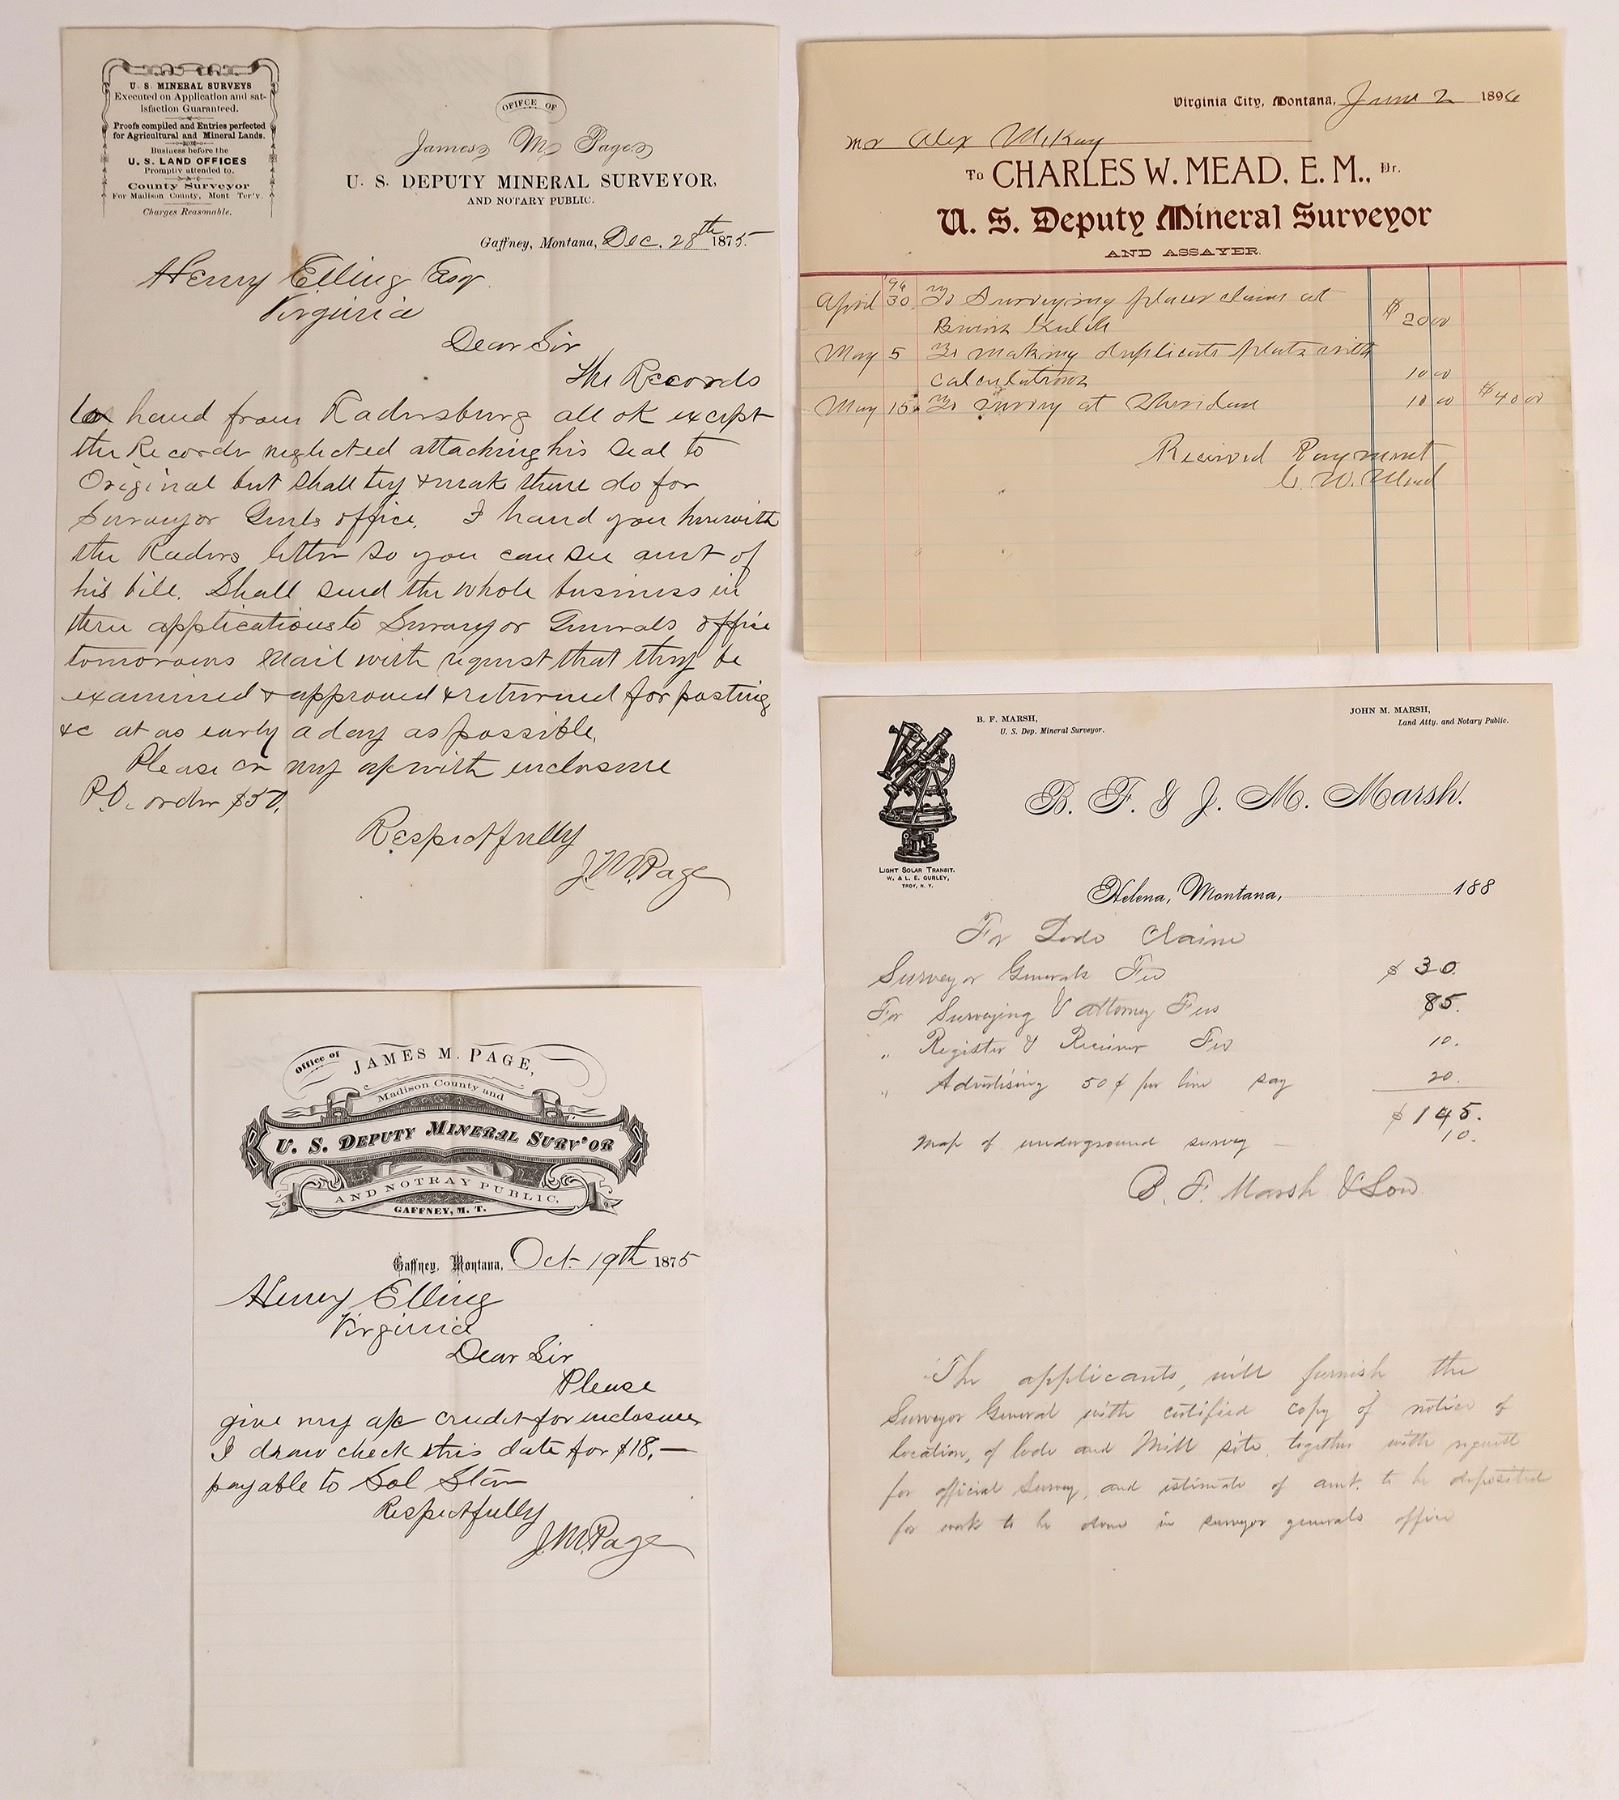 U. S. MINERAL SURVEYS
Executed on Application and sat-
isfaction Guaranteed.
Proofs compiled and Entries perfected
for Agricultural and Mineral Lands.
Business before the
U. S. LAND OFFICES
Promptly attended to.
County Surveyor
For Madison County, Mont Ter'y.
Charges Reasonable.
OFFICE OF
James M. Page
U. S. DEPUTY MINERAL SURVEYOR,
AND NOTARY PUBLIC.
Gaffney, Montana, Dec. 28th 1875.
Henry Elling Esq.
Virginia
Dear Sir
The Records
to hand from Radersburg all ok except
the Recorder neglected attaching his seal to
Original but shall try & make them do for
Surveyor Genls office. I hand you herewith
the letter so you can see amt of
his bill. Shall send the whole business in
three applications to Surveyor Generals office
tomorrows Mail with request that they be
examined & approved & returned for posting
&c at as early a day as possible.
Please cr my a/c with enclosure
P.O. order $50.
Respectfully
J. M. Page
Virginia City, Montana, June 2 1896
Mr Alex McKay
To CHARLES W. MEAD, E. M., Dr.
U. S. Deputy Mineral Surveyor
AND ASSAYER.
96
April 30 To Surveying placer claims at
Gulch $ 20 00
May 5 To making duplicate plats with
calculations 10 00
May 15 To survey at Sheridan 10 00 $40 00
Received Payment
C. W. Mead
B. F. MARSH,
U. S. Dep. Mineral Surveyor.
JOHN M. MARSH,
Land Atty. and Notary Public.
B. F. & J. M. Marsh.
LIGHT SOLAR TRANSIT.
W. & L. E. GURLEY,
TROY, N. Y.
Helena, Montana, 188
For Lode Claim
Surveyor Generals Fee $ 30.
For Surveying & attorney Fees 85.
" Register & Receiver Fee 10.
" Advertising 50¢ per line say 20.
$ 145.
Map of underground survey — 10.
B. F. Marsh & Son
The applicants, will furnish the
Surveyor General with certified copy of notice of
location, of lode and Mill site, together with request
for official Survey, and estimate of amt. to be deposited
for work to be done in surveyor generals office
Office of
JAMES M. PAGE,
Madison County and
U. S. DEPUTY MINERAL SURV'OR
AND NOTRAY PUBLIC,
GAFFNEY, M. T.
Gaffney, Montana, Oct. 19th 1875
Henry Elling
Virginia
Dear Sir
Please
give my a/c credit for inclosure
I draw check this date for $18.—
payable to Sol Star
Respectfully
J. M. Page